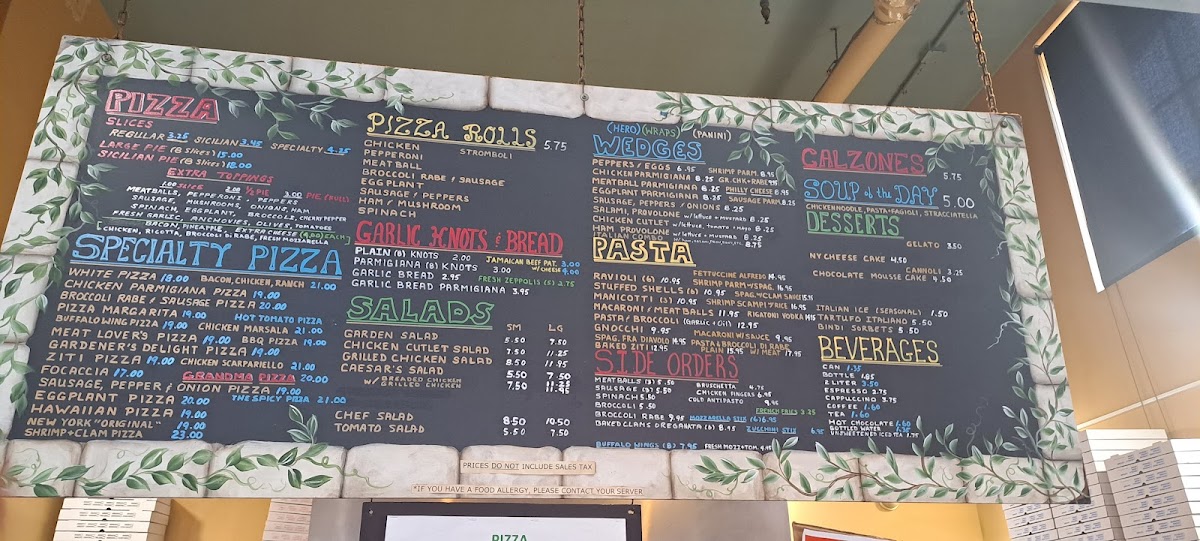 PIZZA
SLICES
REGULAR 3.25 SICILIAN 3.45 SPECIALTY 4.25
LARGE PIE (8 Slices) 15.00
SICILIAN PIE (8 Slices) 18.00
EXTRA TOPPINGS
1.00 SLICE 2.00 1/2 PIE 3.00 PIE (FULL)
MEATBALLS, PEPPERONI, PEPPERS
SAUSAGE, MUSHROOMS, ONIONS, HAM
SPINACH, EGGPLANT, BROCCOLI, CHERRY PEPPER
FRESH GARLIC, ANCHOVIES, OLIVES, TOMATOES
BACON, PINEAPPLE, EXTRA CHEESE (4.00) EACH
CHICKEN, RICOTTA, BROCCOLI DI RABE, FRESH MOZZARELLA
SPECIALTY PIZZA
WHITE PIZZA 18.00 BACON, CHICKEN, RANCH 21.00
CHICKEN PARMIGIANA PIZZA 19.00
BROCCOLI RABE / SAUSAGE PIZZA 20.00
PIZZA MARGARITA 19.00 HOT TOMATO PIZZA
BUFFALO WING PIZZA 19.00 CHICKEN MARSALA 21.00
MEAT LOVER'S PIZZA 19.00 BBQ PIZZA 19.00
GARDENER'S DELIGHT PIZZA 19.00
ZITI PIZZA 19.00 CHICKEN SCARPARIELLO 21.00
FOCACCIA 17.00 GRANDMA PIZZA 20.00
SAUSAGE, PEPPER / ONION PIZZA 19.00
EGGPLANT PIZZA 20.00 THE SPICY PIZZA 21.00
HAWAIIAN PIZZA 19.00
NEW YORK "ORIGINAL" 19.00
SHRIMP + CLAM PIZZA 23.00
PIZZA ROLLS 5.75
CHICKEN STROMBOLI
PEPPERONI
MEATBALL
BROCCOLI RABE / SAUSAGE
EGGPLANT
SAUSAGE / PEPPERS
HAM / MUSHROOM
SPINACH
GARLIC KNOTS & BREAD
PLAIN (8) KNOTS 2.00 JAMAICAN BEEF PAT. 3.00
PARMIGIANA (8) KNOTS 3.00 W/CHEESE 4.00
GARLIC BREAD 2.95 FRESH ZEPPOLIS (5) 2.75
GARLIC BREAD PARMIGIANA 3.95
SALADS
SM LG
GARDEN SALAD 5.50 7.50
CHICKEN CUTLET SALAD 7.50 11.25
GRILLED CHICKEN SALAD 8.50 11.95
CAESAR'S SALAD 5.50 7.50
W/ BREADED CHICKEN 7.50 11.25
W/ GRILLED CHICKEN 11.95
CHEF SALAD 8.50 10.50
TOMATO SALAD 5.50 7.50
(HERO) (WRAPS) (PANINI)
WEDGES
PEPPERS / EGGS 6.95 SHRIMP PARM. 8.95
CHICKEN PARMIGIANA 8.25 GR. CHK + RABE 9.95
MEATBALL PARMIGIANA 8.25 PHILLY CHEESE 8.95
EGGPLANT PARMIGIANA 8.25 SAUSAGE PARM. 8.25
SAUSAGE, PEPPERS / ONIONS 8.25
SALAMI, PROVOLONE w/lettuce + mustard 8.25
CHICKEN CUTLET w/lettuce, tomato + mayo 8.25
HAM PROVOLONE w/lettuce + mustard 8.25
ITALIAN COMBO 8.75
PASTA
RAVIOLI (6) 10.95 FETTUCCINE ALFREDO 14.95
STUFFED SHELLS (6) 10.95 SHRIMP PARM w/SPAG. 16.95
MANICOTTI (3) 10.95 SPAG. w/CLAM SAUCE
MACARONI / MEATBALLS 11.95 SHRIMP SCAMPI w/RICE 16.95
PASTA / BROCCOLI (Garlic + Oil) 12.95 RIGATONI VODKA
GNOCCHI 9.95 MACARONI W/ SAUCE 9.95
SPAG. FRA DIAVOLO 16.95 PASTA + BROCCOLI DI RABE
BAKED ZITI 12.95 PLAIN 15.95 W/ MEAT 17.95
SIDE ORDERS
MEATBALLS (3) 5.50 BRUSCHETTA 4.75
SAUSAGE (3) 5.50 CHICKEN FINGERS 6.95
SPINACH 5.50 COLD ANTIPASTO 9.95
BROCCOLI 5.50 FRENCH FRIES 3.25
BROCCOLI RABE 9.95 MOZZARELLA STIX (6) 6.95
BAKED CLAMS OREGANATA (6) 8.95 ZUCCHINI STIX 6.95
BUFFALO WINGS (8) 7.95 FRESH MOZZ + TOM. 9.95
CALZONES 5.75
SOUP of the DAY 5.00
CHICKEN NOODLE, PASTA + FAGIOLI, STRACCIATELLA
DESSERTS
GELATO 3.50
NY CHEESE CAKE 4.50
CANNOLI 3.25
CHOCOLATE MOUSSE CAKE 4.50
ITALIAN ICE (SEASONAL) 1.50
TARTUFO ITALIANO 5.50
BINDI SORBETS 5.50
BEVERAGES
CAN 1.35
BOTTLE 1.85
2 LITER 3.50
ESPRESSO 2.75
CAPPUCCINO 3.75
COFFEE 1.60
TEA 1.60
HOT CHOCOLATE 1.60
BOTTLED WATER 1.35
UNSWEETENED ICED TEA 2.75
PRICES DO NOT INCLUDE SALES TAX
*IF YOU HAVE A FOOD ALLERGY, PLEASE CONTACT YOUR SERVER
PIZZA